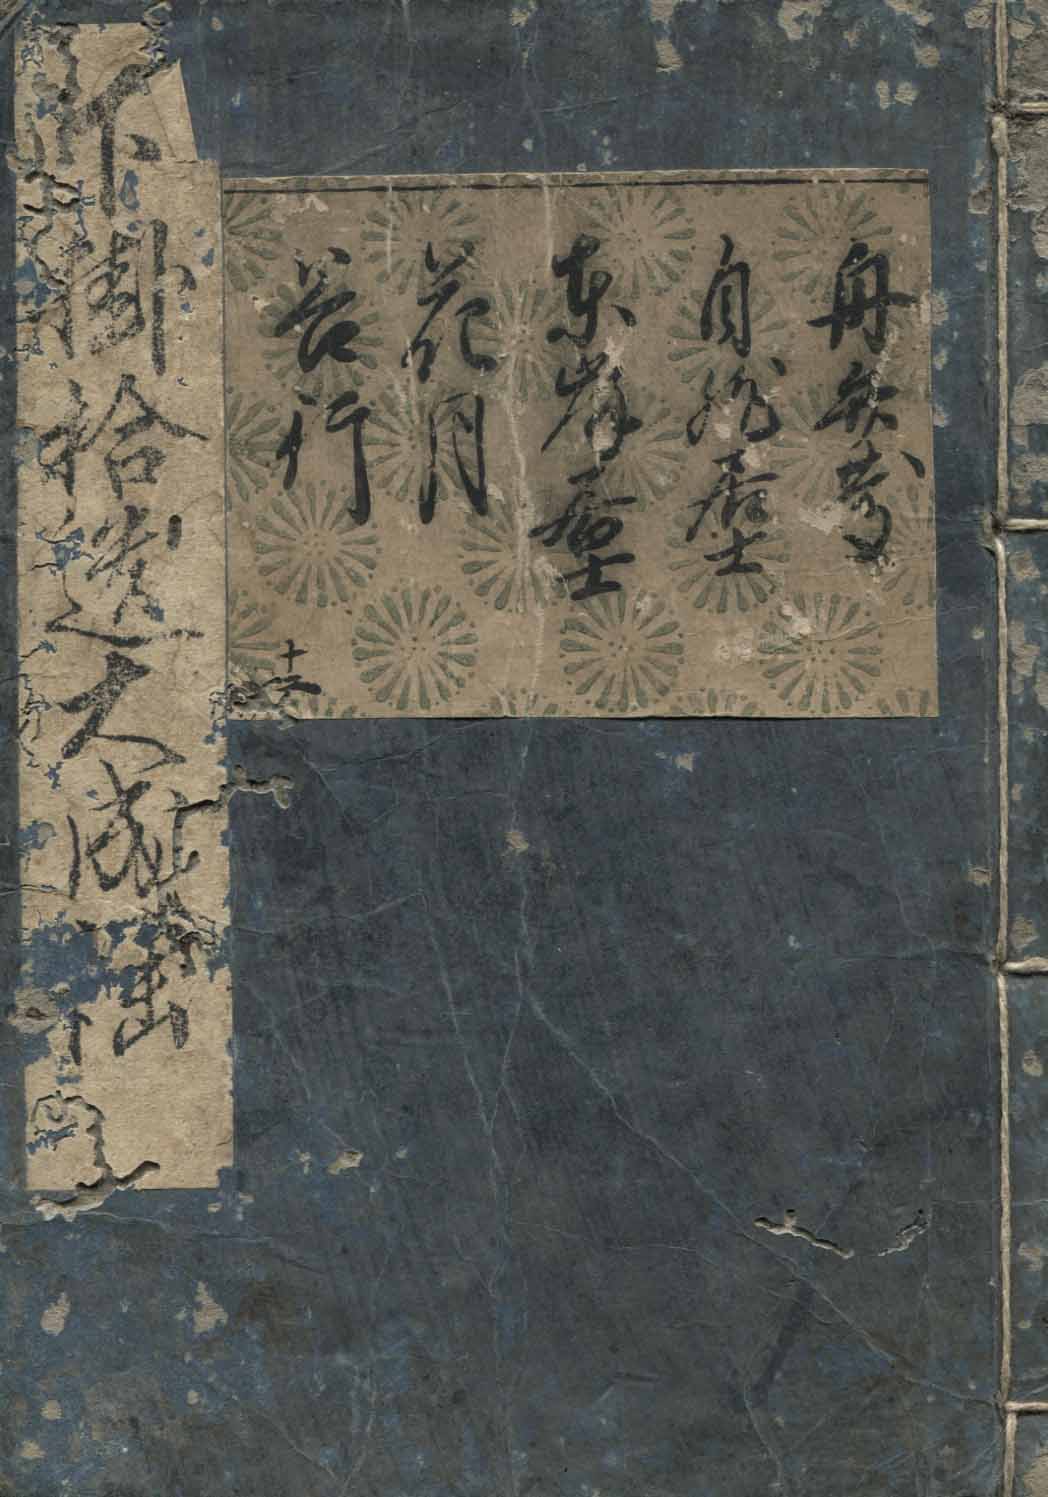 舟弁慶
自然居士
東岸居士
花月
谷行
十六
下掛拾遺大成